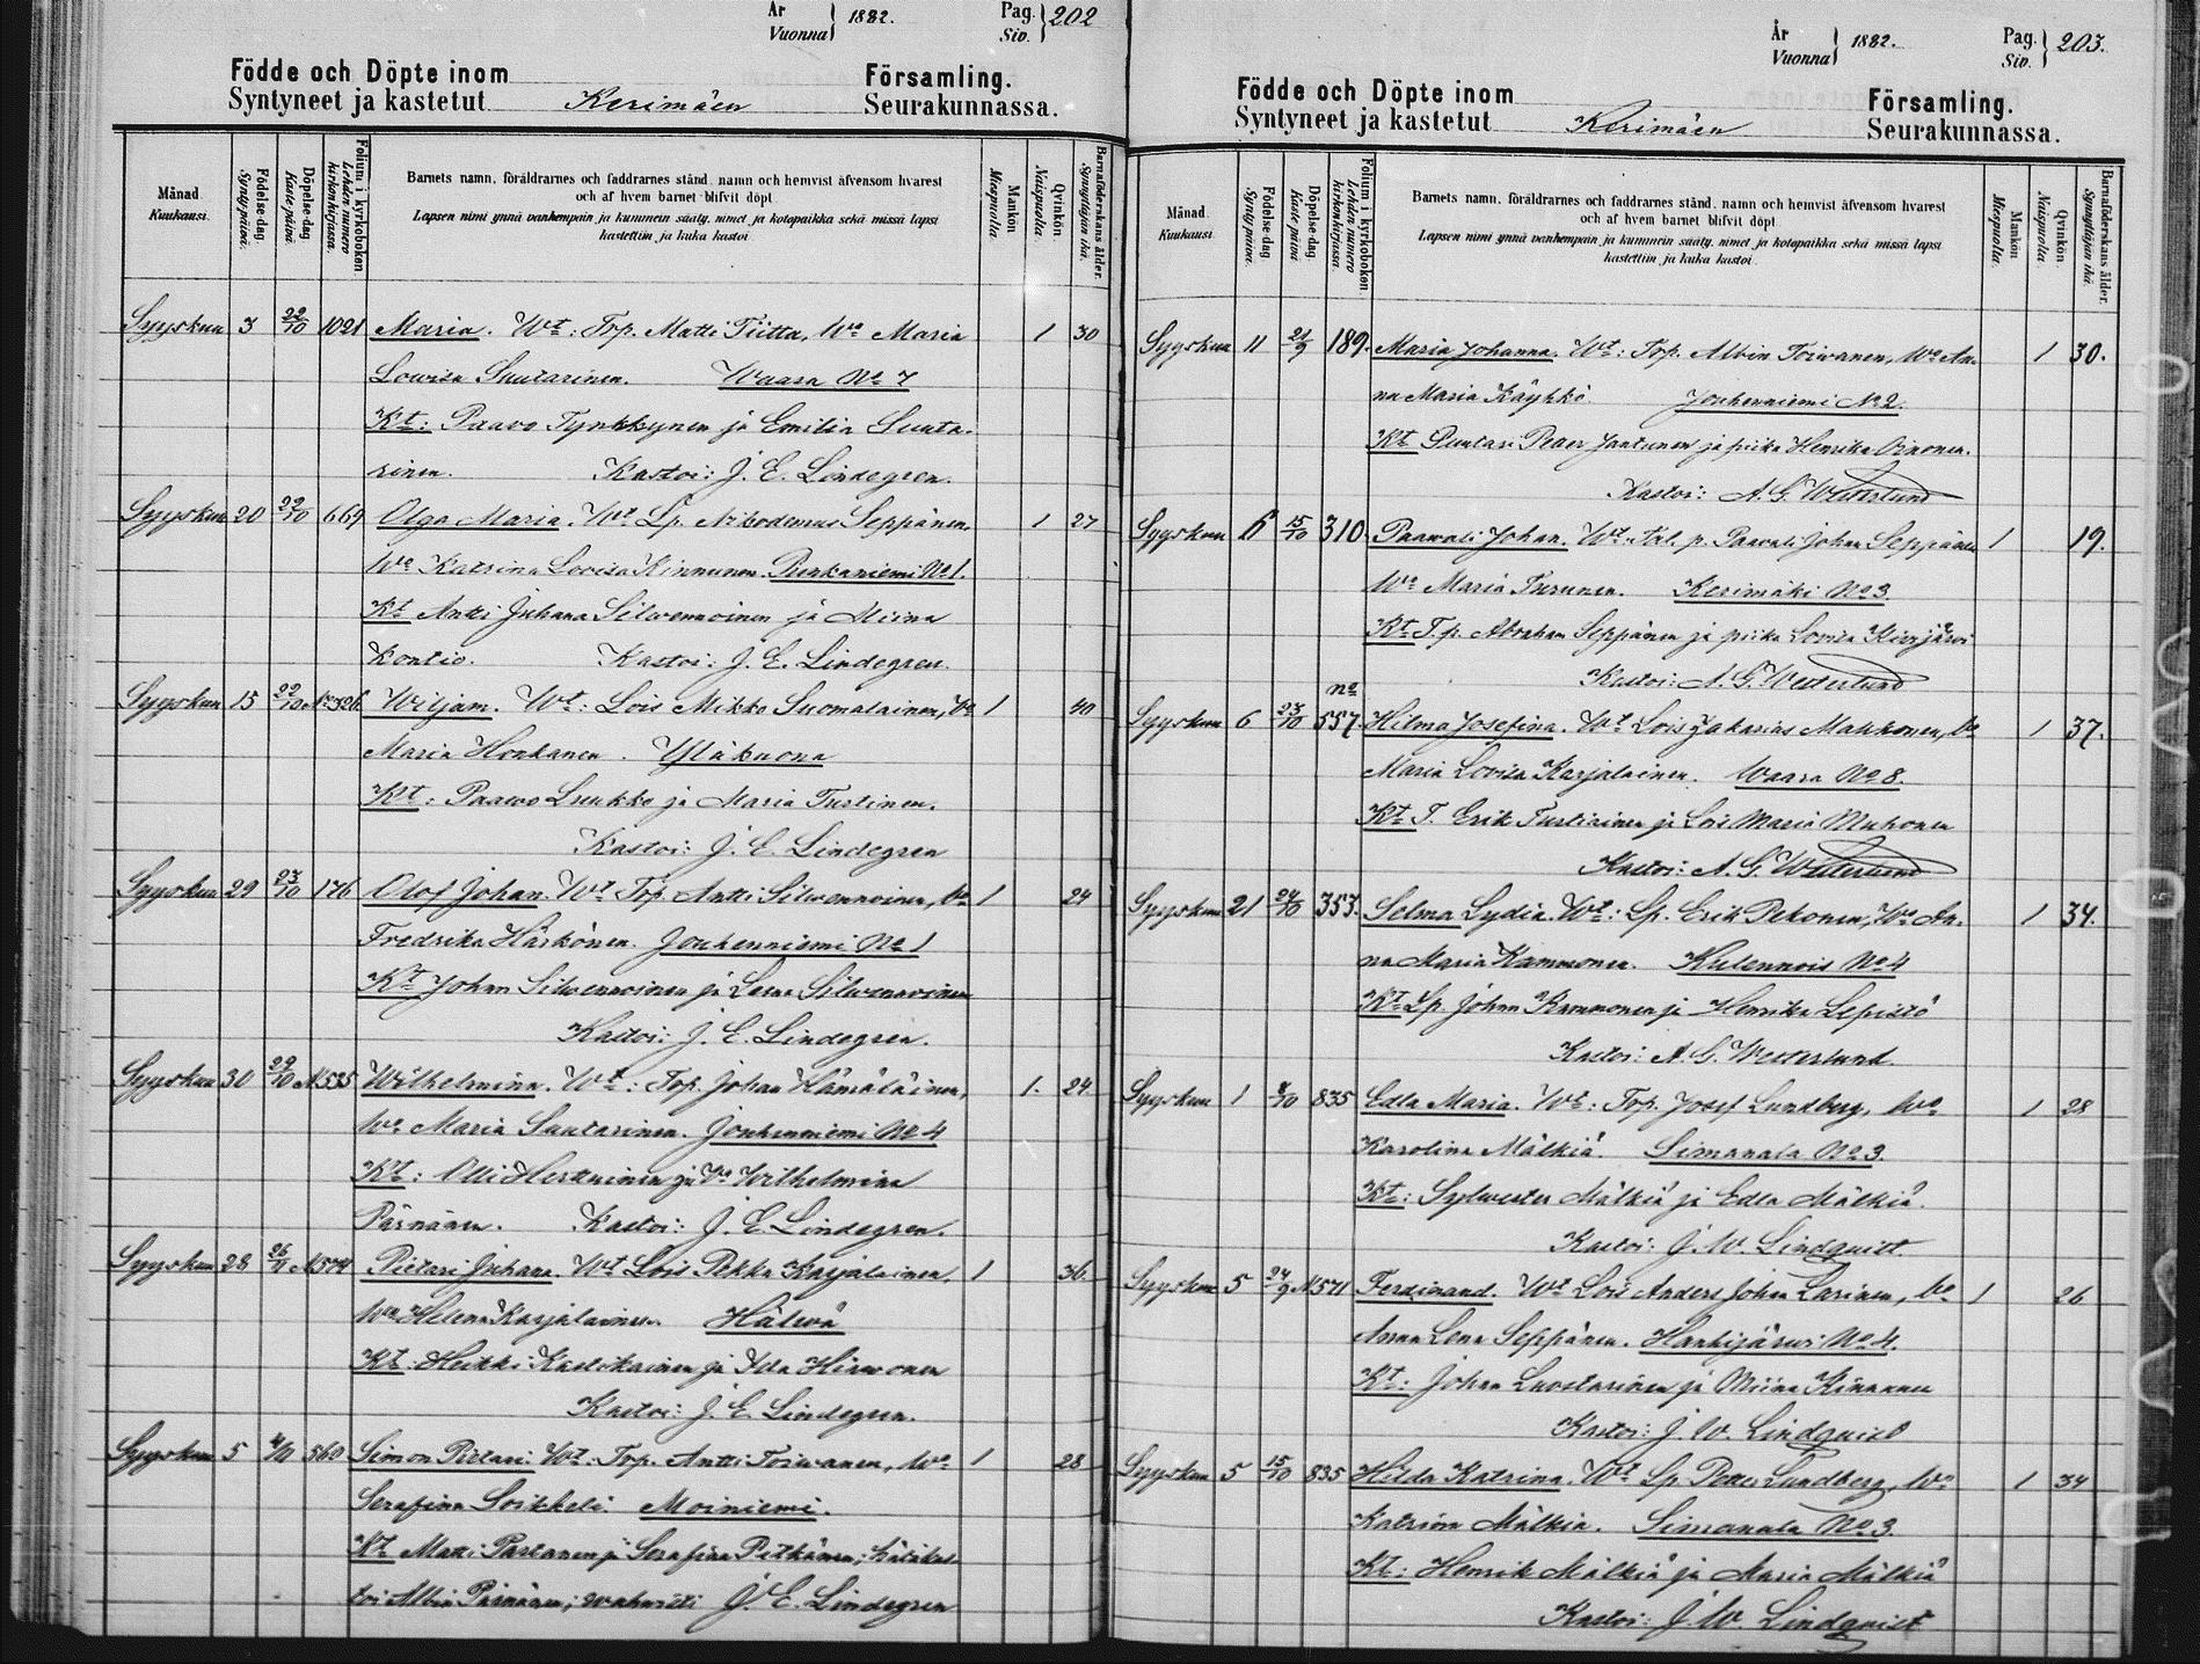 År Vuonna } 1882. Pag. Siv. } 202
Födde och Döpte inom Församling.
Syntyneet ja kastetut Kerimäen Seurakunnassa.
Månad Kuukausi. Födelse-dag. Synty-päivä. Döpelse-dag Kaste-päivä Folium i kyrkoboken. Lehden numero kirkonkirjassa. Barnets namn, föräldrarnes och faddrarnes stånd, namn och hemvist äfvensom hvarest Mankön Miespuolia. Qvinkön Naispuolia. Barnaföderskans ålder. Synnyttäjän ikä.
och af hvem barnet blifvit döpt
Lapsen nimi ynnä vanhempain ja kummein sääty, nimet ja kotopaikka sekä missä lapsi
kastettiin ja kuka kastoi
Syyskuu 3 22/10 1021 Maria. Wt: Trp. Matti Tiitta, Wo Maria 1 30
Lowisa Suutarinen. Waara No 7
Kt: Paavo Tynkkynen ja Emilia Suuta-
rinen. Kastoi: J. E. Lindegren.
Syyskuu 20 22/10 669 Olga Maria. Wt Lp. Nikodemus Seppänen, 1 27
Wo Katrina Lovisa Kinnunen. Punkaniemi No 1.
Kt Antti Juhana Silwennoinen ja Miina
Kontio. Kastoi: J. E. Lindegren.
Syyskuu 15 22/10 No 326 Wiljam. Wt: Lois Mikko Suomalainen, Wo 1 40
Maria Honkanen. Yläkuona
Kt: Paawo Luukko ja Maria Turtinen.
Kastoi: J. E. Lindegren
Syyskuu 29 23/10 176 Olof Johan. Wt Trp. Antti Silwennoinen, Wo 1 24
Fredrika Härkönen. Jouhenniemi No 1
Kt Johan Silwennoinen ja Leena Silwennoinen
Kastoi: J. E. Lindegren.
Syyskuu 30 29/10 N 535 Wilhelmiina. Wt: Trp. Johan Hämäläinen, 1. 24.
Wo Maria Suutarinen. Jouhenniemi No 4
Kt: Olli Herttuinen ja Wo Wilhelmina
Pärnänen. Kastoi: J. E. Lindegren.
Syyskuu 28 26/11 N 574 Pietari Juhana. Wt Lois Pekka Karjalainen, 1 36.
Wo Helena Karjalainen. Hälvä
Kt: Heikki Kaulokainen ja Ida Hirwonen
Kastoi: J. E. Lindegren.
Syyskuu 5 4/11 560 Simon Pietari. Wt: Trp. Antti Toiwanen, Wo 1 28
Serafina Loikkeli. Moiniemi.
Kt Matti Partanen ja Serafina Pitkänen; hätäkas-
toi Albin Pärnänen; wahwisti J. E. Lindegren
År Vuonna } 1882. Pag. Siv. } 203.
Födde och Döpte inom Församling.
Syntyneet ja kastetut Kerimäen Seurakunnassa.
Månad Kuukausi. Födelse-dag Synty-päivä. Döpelse-dag Kaste-päivä Folium i kyrkoboken. Lehden numero kirkonkirjassa. Barnets namn, föräldrarnes och faddrarnes stånd, namn och hemvist äfvensom hvarest Mankön Miespuolia. Qvinkön. Naispuolia. Barnaföderskans ålder. Synnyttäjän ikä.
och af hvem barnet blifvit döpt.
Lapsen nimi ynnä vanhempain ja kummein sääty, nimet ja kotopaikka sekä missä lapsi
kastettiin ja kuka kastoi
Syyskuu 11 21/9 189. Maria Johanna. Wt: Trp. Albin Toiwanen, Wo An- 1 30.
na Maria Käyhkö. Jouhenniemi No 2.
Kt Suutari Peter Jantunen ja piika Henrika Oinonen.
Kastoi: A. G. Westerlund
Syyskuu 6 15/10 310. Paawali Johan. Wt. Tal. p. Paawali Johan Seppänen 1 19.
Wo Maria Turunen. Kerimäki No 3
Kt T. p. Abraham Seppänen ja piika Lovisa Kiwijärwi
Kastoi: A. G. Westerlund
Syyskuu 6 23/10 No 557. Hilma Josefina. Wt Lois Zakarias Makkonen, Wo 1 37.
Maria Lovisa Karjalainen. Waara No 8.
Kt T. Erik Turtiainen ja Lois Maria Muhonen
Kastoi: A. G. Westerlund
Syyskuu 21 24/10 353. Selma Lydia. Wt: Lp. Erik Pekonen, Wo An- 1 34.
na Maria Kammonen. Kulennois No 4
Kt Lp. Johan Kammonen ja Henrika Lepistö
Kastoi: A. G. Westerlund
Syyskuu 1 8/10 835 Edla Maria. Wt: Trp. Josef Lundberg, Wo 1 28
Karolina Mälkiä. Simanala No 3.
Kt: Sylwester Mälkiä ja Edla Mälkiä.
Kastoi: J. W. Lindquist
Syyskuu 5 24/9 N 571 Ferdinand. Wt Lois Anders Johan Larinen, Wo 1 26
Anna Lena Seppänen. Hankijärwi No 4.
Kt: Johan Luostarinen ja Miina Kinnunen
Kastoi: J. W. Lindquist
Syyskuu 5 15/10 835 Hilda Katrina. Wt Lp Peter Lundberg, Wo 1 34
Katriina Mälkiä. Simanala No 3.
Kt: Henrik Mälkiä ja Maria Mälkiä
Kastoi: J. W. Lindquist